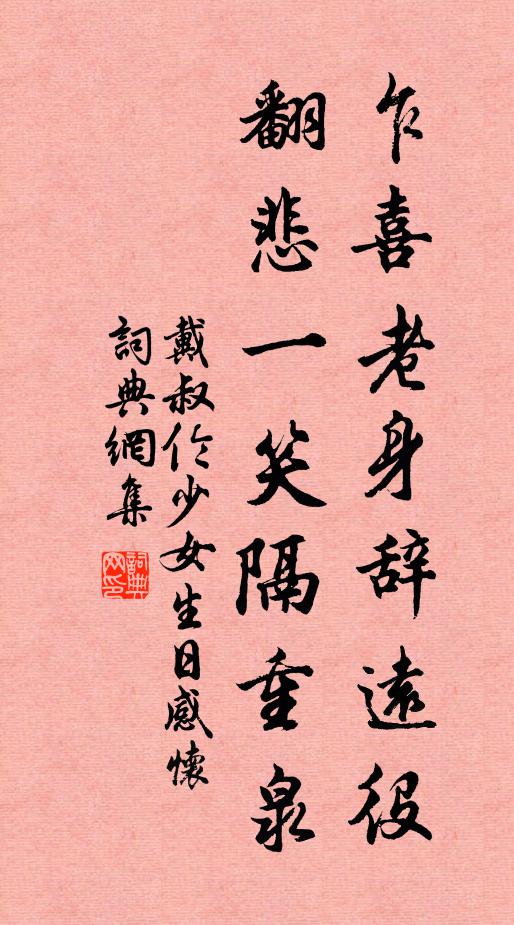 乍喜老身辞遠役
翻悲一笑隔重泉
戴叔伦少女生日感懷
詞典網集
詞典网印